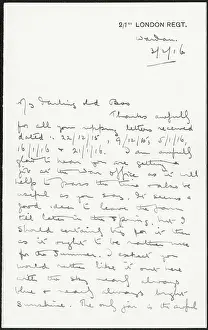 2/1ST LONDON REGT.
2/2/16
My Darling old Bos
Thanks awfully
for all your ripping letters received
dated :- 22/12/15, 9/12/15, 5/1/16,
16/1/16 & 21/1/16. I am awfully
glad to hear you are getting a
job at the War Office as it will
help to pass the time & also be
useful as you say. It seems a
good idea to leave the
till later in the Spring, but I
should certainly in
as it ought to be
for the Summer. I expect you
would rather like it out here
with the sky nearly always
blue & nearly always bright
sunshine. The only jar is the awful